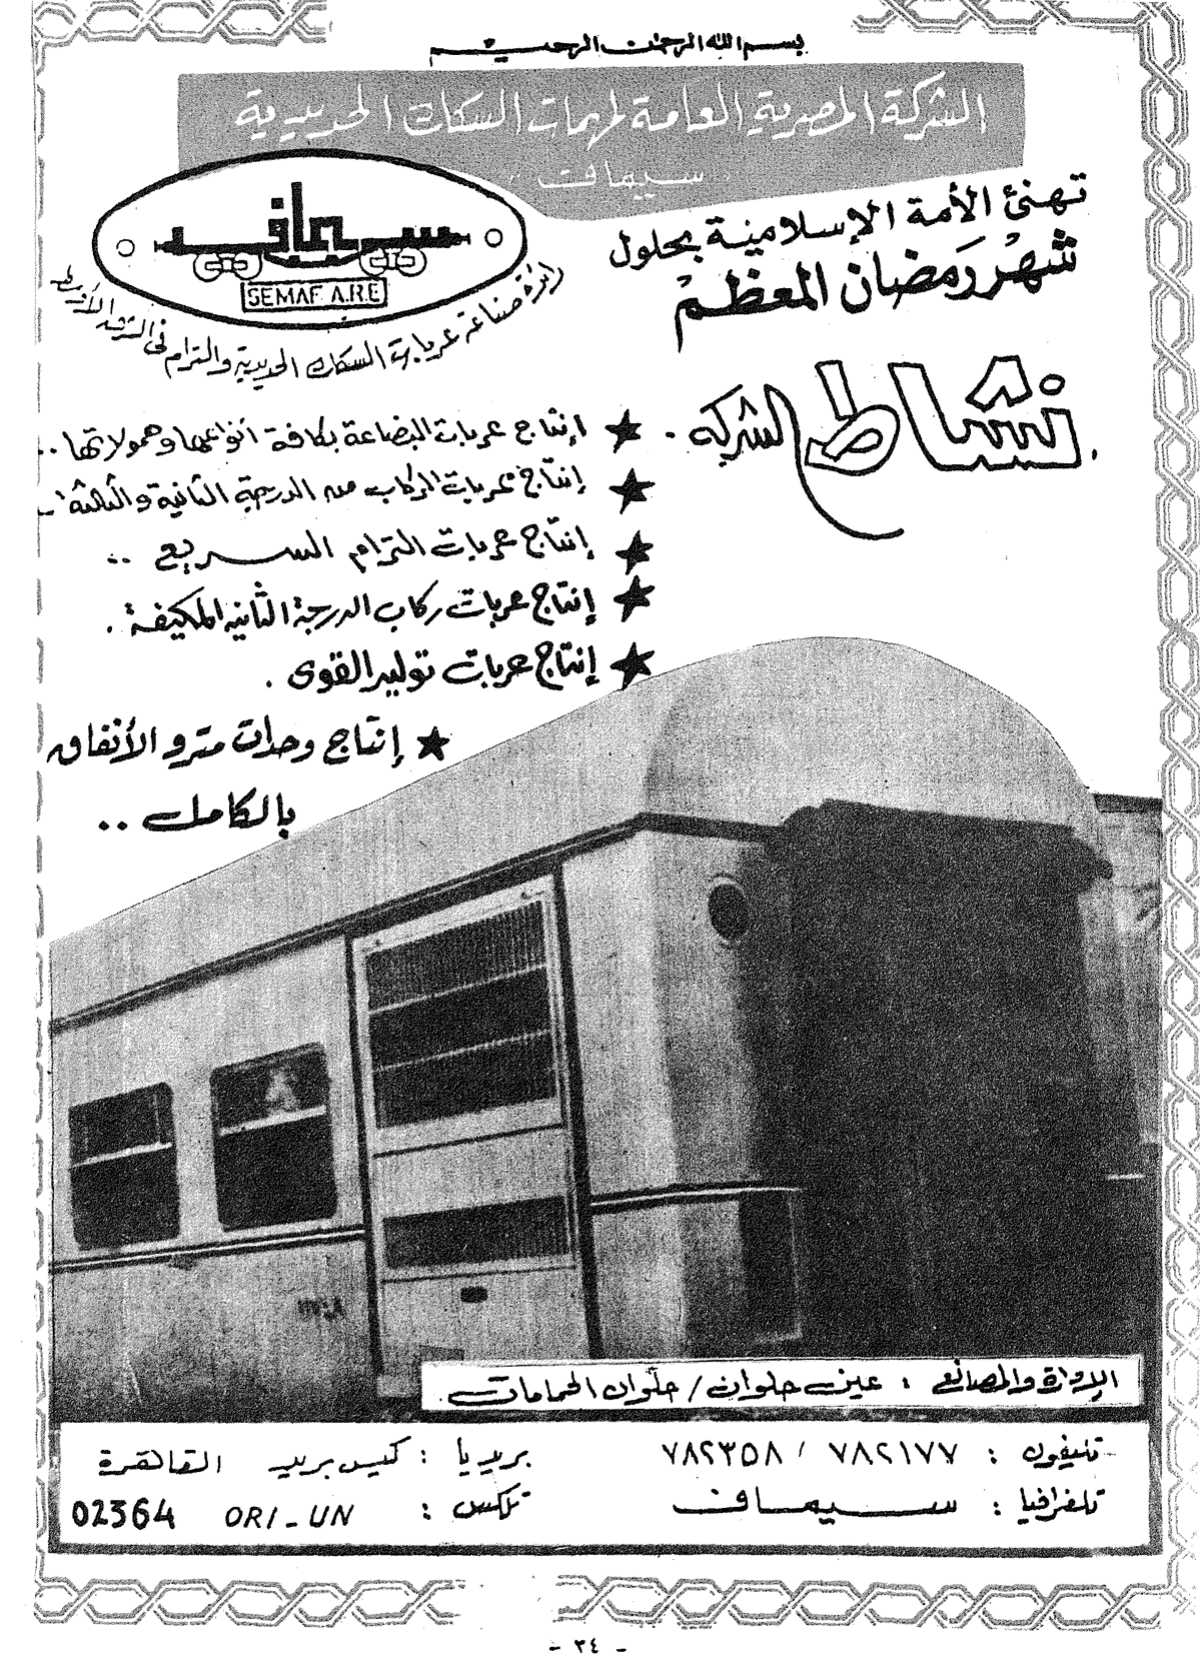 بسم الله الرحمن الرحيم
الشركة المصرية العامة لمهمات السكك الحديدية
سيمافت
تهنئ الأمة الإسلامية بحلول
شهر رمضان المعظم
سيماف
SEMAF A.R.E
رائدة صناعة عربات السكك الحديدية والترام في الشرق الأوسط
نشاط الشركة .
★ إنتاج عربات البضاعة بكافة أنواعها وحمولاتها ..
★ إنتاج عربات الركاب من الدرجة الثانية والثالثة
★ إنتاج عربات الترام السريع ..
★ إنتاج عربات ركاب الدرجة الثانيه المكيفة .
★ إنتاج عربات توليد القوى .
★ إنتاج وحدات مترو الأنفاق
بالكامل ..
الإدارة والمصانع : عين حلوان / حلوان الحمامات .
تليفون : ٧٨٢١٧٧ / ٧٨٢٣٥٨
بريديا : كيس بريد القاهرة
تلغرافيا : سيمافت
تلكس : ORI_UN 02364
- ٣٤ -